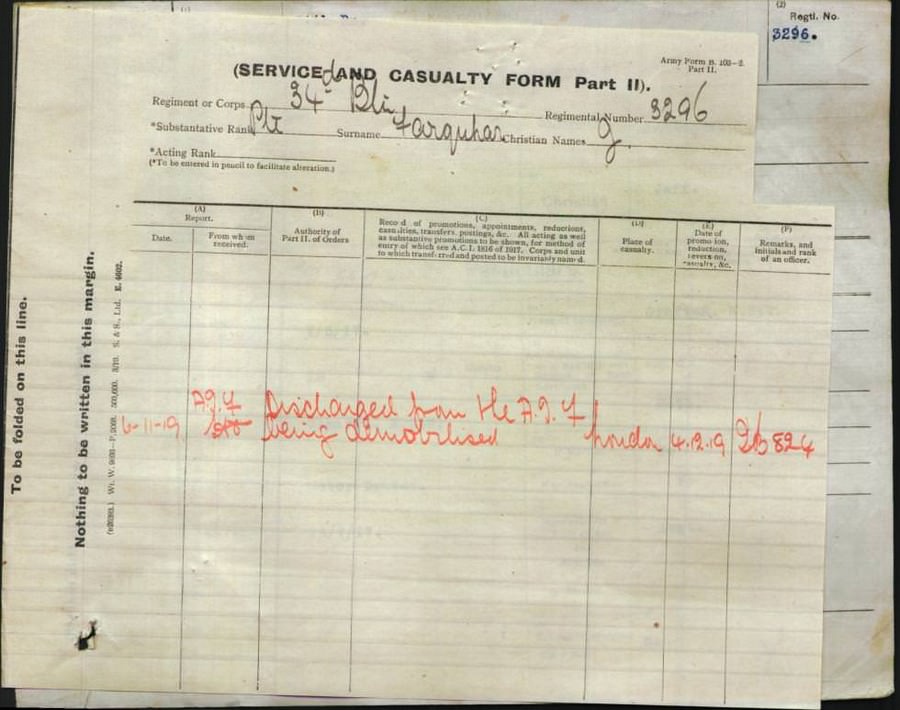 (2)
Regtl. No.
3296.
Army Form B. 103—2.
Part II.
(SERVICE AND CASUALTY FORM Part II).
Regiment or Corps 34 Bn Regimental Number 3296
*Substantive Rank Pte Surname Farquhar Christian Names G.
*Acting Rank
(*To be entered in pencil to facilitate alteration.)
(A)
Report.
Date.
From whom received.
(B)
Authority of
Part II. of Orders
(C)
Record of promotions, appointments, reductions,
casualties, transfers, postings, &c. All acting as well
as substantive promotions to be shown, for method of
entry of which see A.C.I. 1816 of 1917. Corps and unit
to which transferred and posted to be invariably named.
(D)
Place of
casualty.
(E)
Date of
promotion,
reduction,
reversion,
casualty, &c.
(F)
Remarks, and
initials and rank
of an officer.
A.I.F Discharged from the A.I.F
6-11-19 being demobilised London 4.12.19 824
To be folded on this line.
Nothing to be written in this margin.
S. & S., Ltd. E. 4602.